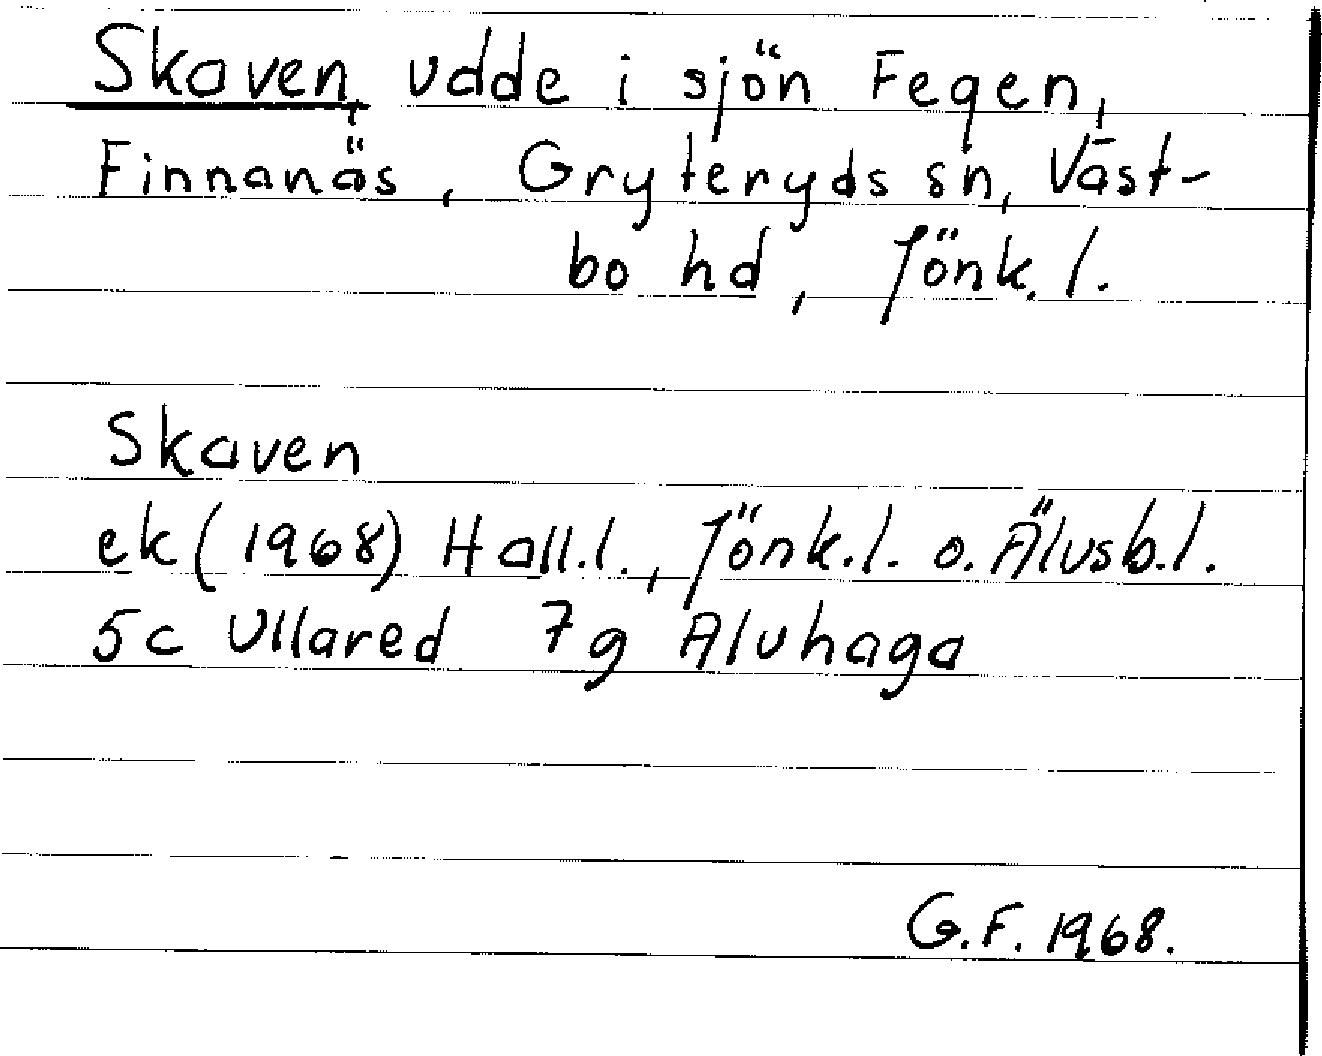 Skaven, udde i sjön Fegen,
Finnanäs, Gryteryds sn, Väst-
bo hd, Jönk. l.
Skaven
ek (1968) Hall.l., Jönk.l. o. Älvsb.l.
5c Ullared 7g Älvhaga
G.F. 1968.